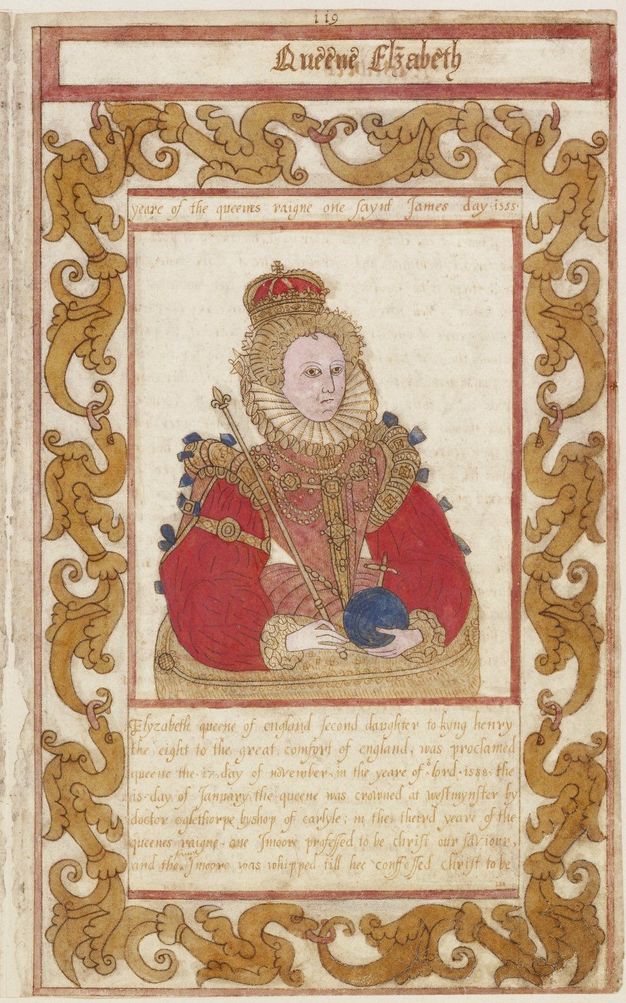 119
Queene Elzabeth
yeare of the queenes raigne one saynt James day·1555·
Elyzabeth queene of england second daughter to kyng henry
the eight to the great comfort of england, was proclamed
queene the·17·day of november·in the yeare of lord·1588·the
15·day of January·the queene was crowned at westmynster by
doctor oglethorpe byshop of carlyle; in the therd yeare of the
queenes raigne·one Jmoore professed to be christ our saviour,
and the Jmoore was whipped till hee confessed christ to be